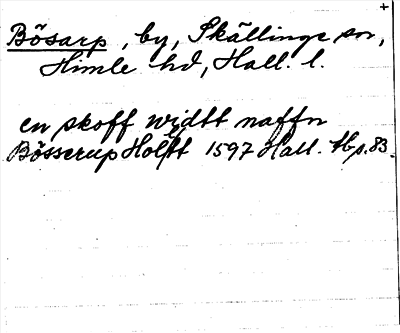 +
Bösarp, by, Skällinge sn,
Himle hd, Hall. l.
en skoff widtt naffn
Bösserup Holtt 1597 Hall. tb p. 83.